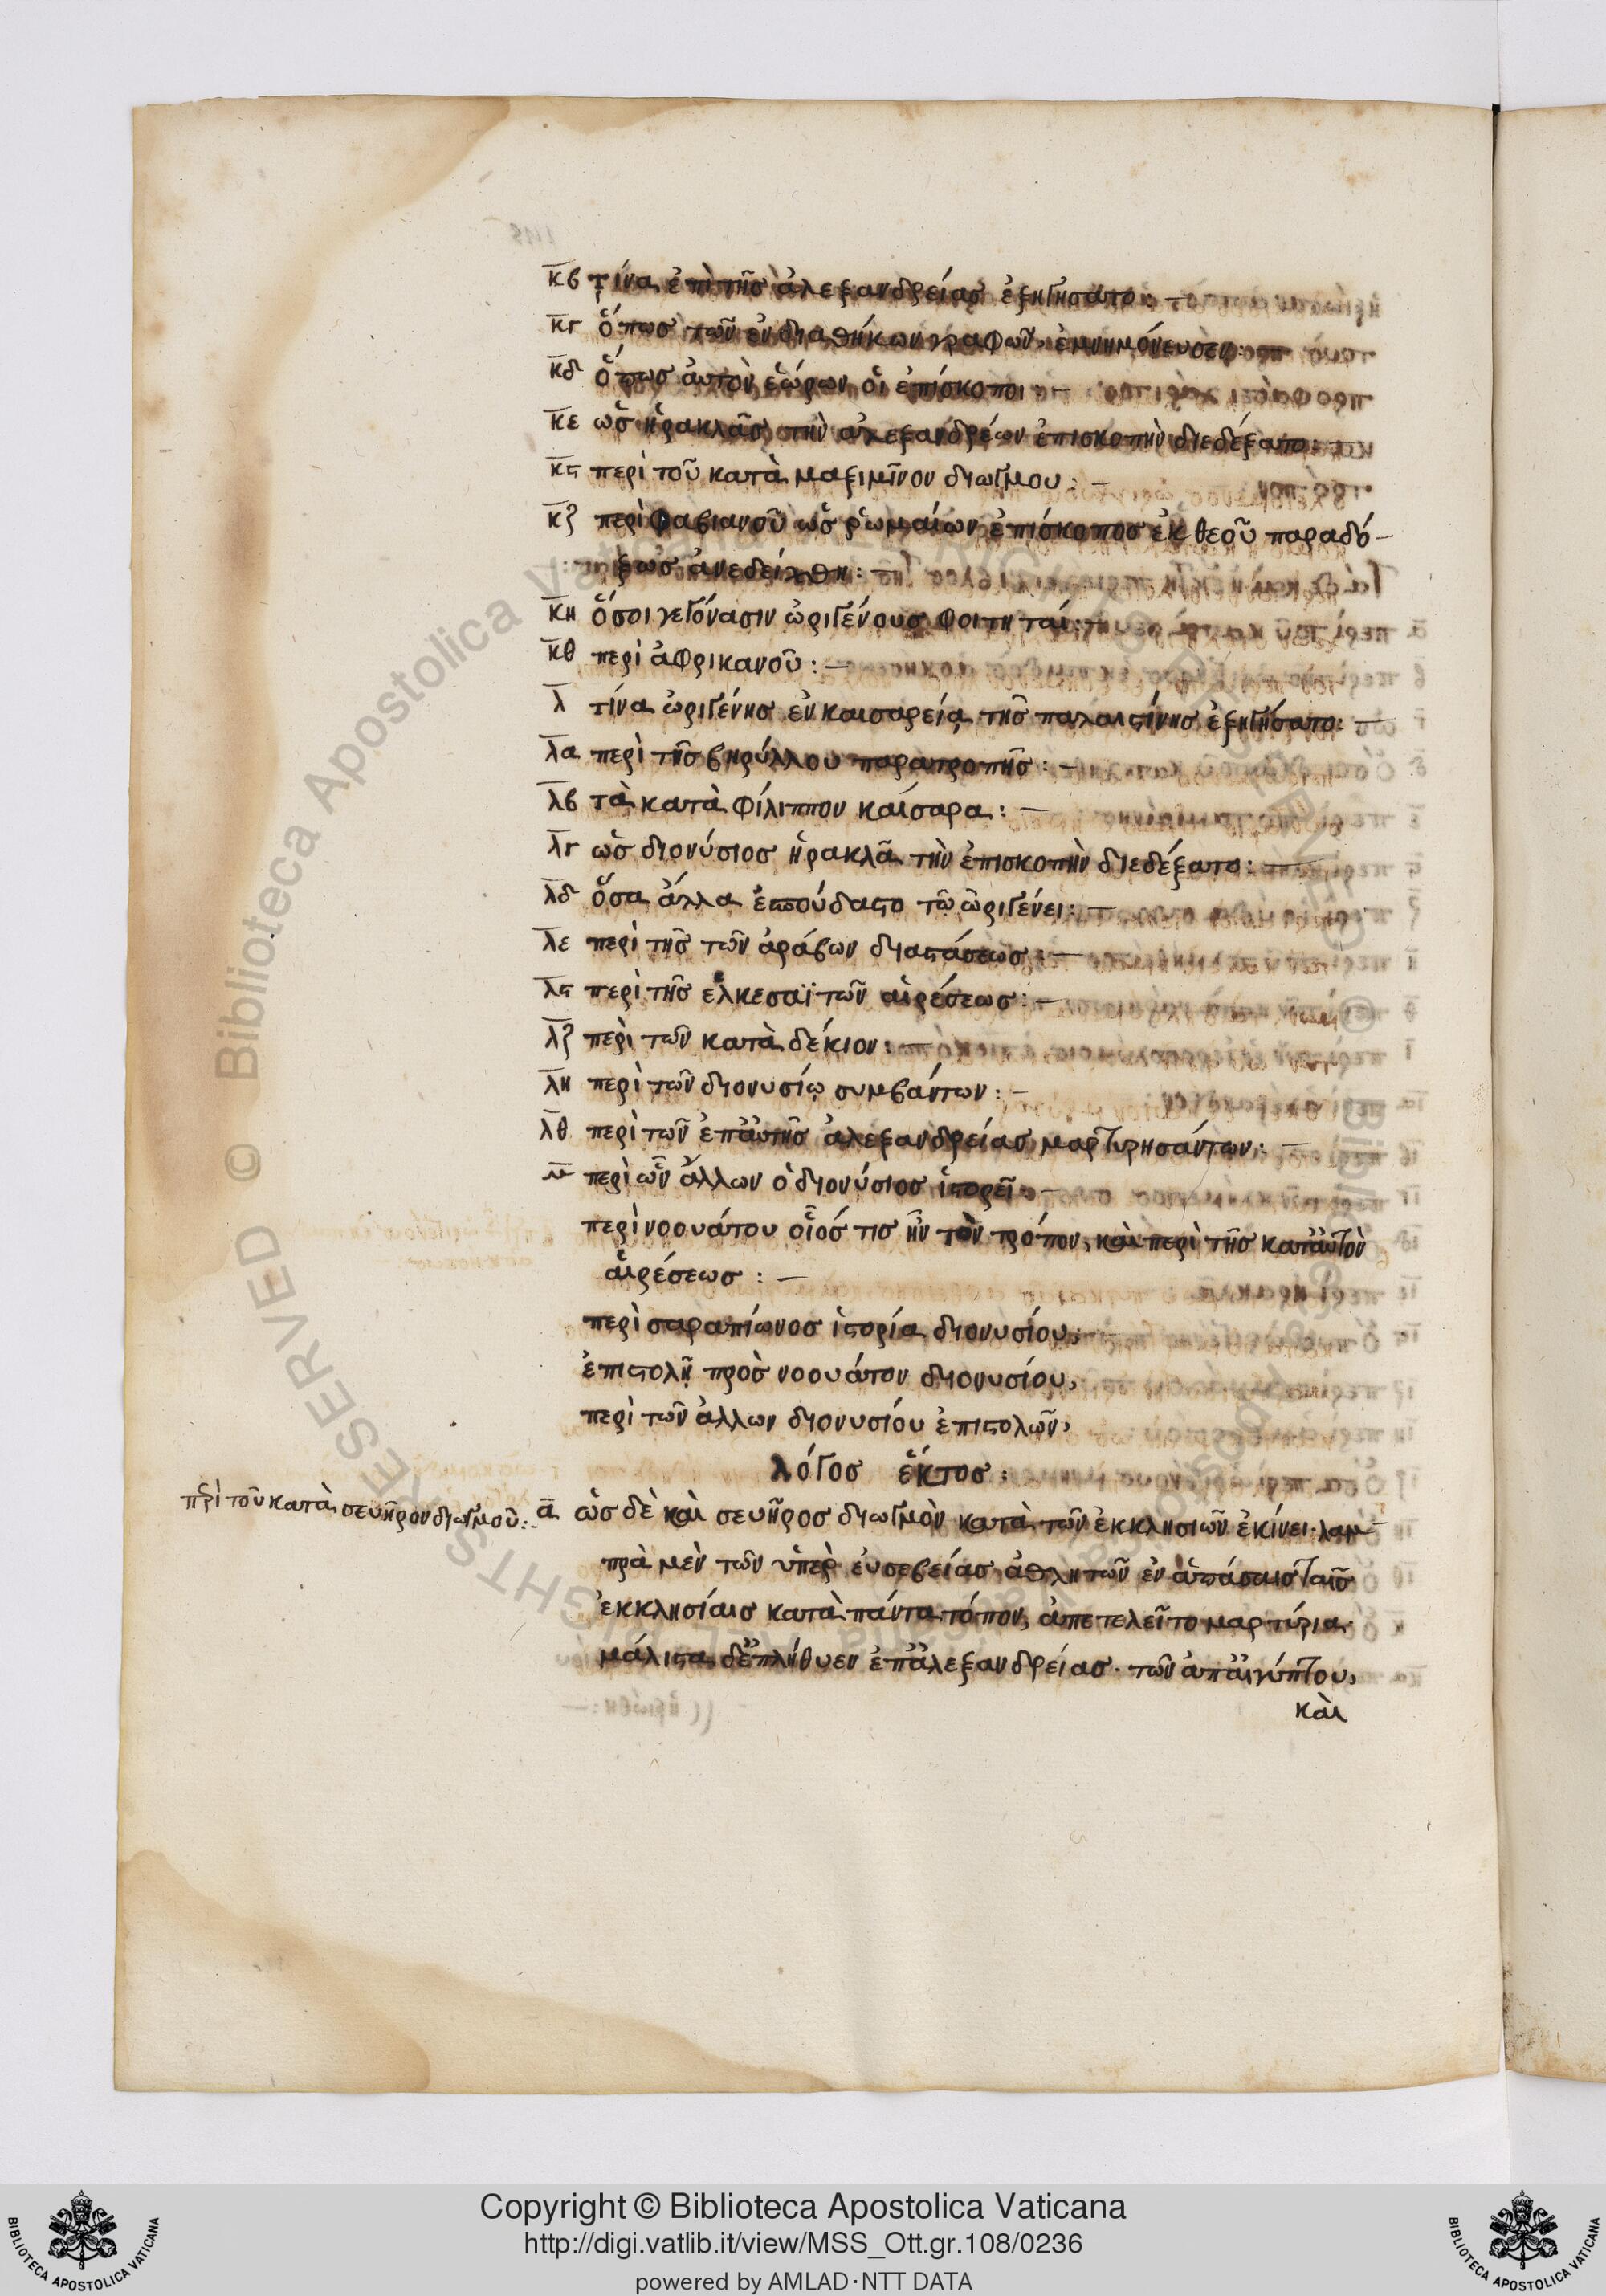 κβ τίνα ἐπὶ τῆς ἀλεξανδρείας ἐξηγήσατο: —
κγ ὅπως τῶν ἐνδιαθήκων γραφῶν, ἐμνημόνευσεν: —
κδ ὅπως αὐτὸν ἑώρων οἱ ἐπίσκοποι: —
κε ὡς ἡρακλᾶς τὴν ἀλεξανδρέων ἐπισκοπὴν διεδέξατο: —
κϛ περὶ τοῦ κατὰ μαξιμῖνον διωγμου: —
κζ περὶ φαβιανοῦ ὡς ῥωμαίων ἐπίσκοπος ἐκ θεοῦ παραδό-
ξως ἀνεδείχθη: —
κη ὅσοι γεγόνασιν ὠριγένους φοιτηταί: —
κθ περὶ ἀφρικανοῦ: —
λ τίνα ὠριγένης ἐν καισαρείᾳ τῆς παλαιστίνης ἐξηγήσατο: —
λα περὶ τῆς βηρύλλου παρατροπῆς: —
λβ τὰ κατὰ φίλιππον καίσαρα: —
λγ ὡς διονύσιος ἡρακλᾶ τὴν ἐπισκοπὴν διεδέξατο: —
λδ ὅσα ἄλλα ἐσπούδαστο τῷ ὠριγένει: —
λε περὶ τῆς τῶν ἀράβων διαστάσεως: —
λϛ περὶ τῆς ἑλκεσαϊτῶν αἱρέσεως: —
λζ περὶ τῶν κατὰ δέκιον: —
λη περὶ τῶν διονυσίῳ συμβάντων: —
λθ περὶ τῶν ἐπ' αὐτῆς ἀλεξανδρείας μαρτυρησάντων: —
μ περὶ ὧν ἄλλων ὁ διονύσιος ἱστορεῖ: —
περὶ νοουάτου οἷός τις ἦν τὸν τρόπον, καὶ περὶ τῆς κατ' αὐτὸν
αἱρέσεως: —
περὶ σαραπίωνος ἱστορία διονυσίου: —
ἐπιστολὴ πρὸς νοουάτον διονυσίου,
περὶ τῶν ἄλλων διονυσίου ἐπιστολῶν,
λόγος ἕκτος:
περὶ τοῦ κατὰ σευῆρον διωγμοῦ: —
α ὡς δὲ καὶ σευῆρος διωγμὸν κατὰ τῶν ἐκκλησιῶν ἐκίνει. λαμ-
πρὰ μὲν τῶν ὑπὲρ εὐσεβείας ἀθλητῶν ἐν ἁπάσαις ταῖς
ἐκκλησίαις κατὰ πάντα τόπον, ἀπετελεῖτο μαρτύρια.
μάλιστα δ' ἐπλήθυεν ἐπ' ἀλεξανδρείας. τῶν ἀπ' αἰγύπτου,
καὶ
Copyright © Biblioteca Apostolica Vaticana
http://digi.vatlib.it/view/MSS_Ott.gr.108/0236
powered by AMLAD·NTT DATA
BIBLIOTECA APOSTOLICA VATICANA
BIBLIOTECA APOSTOLICA VATICANA